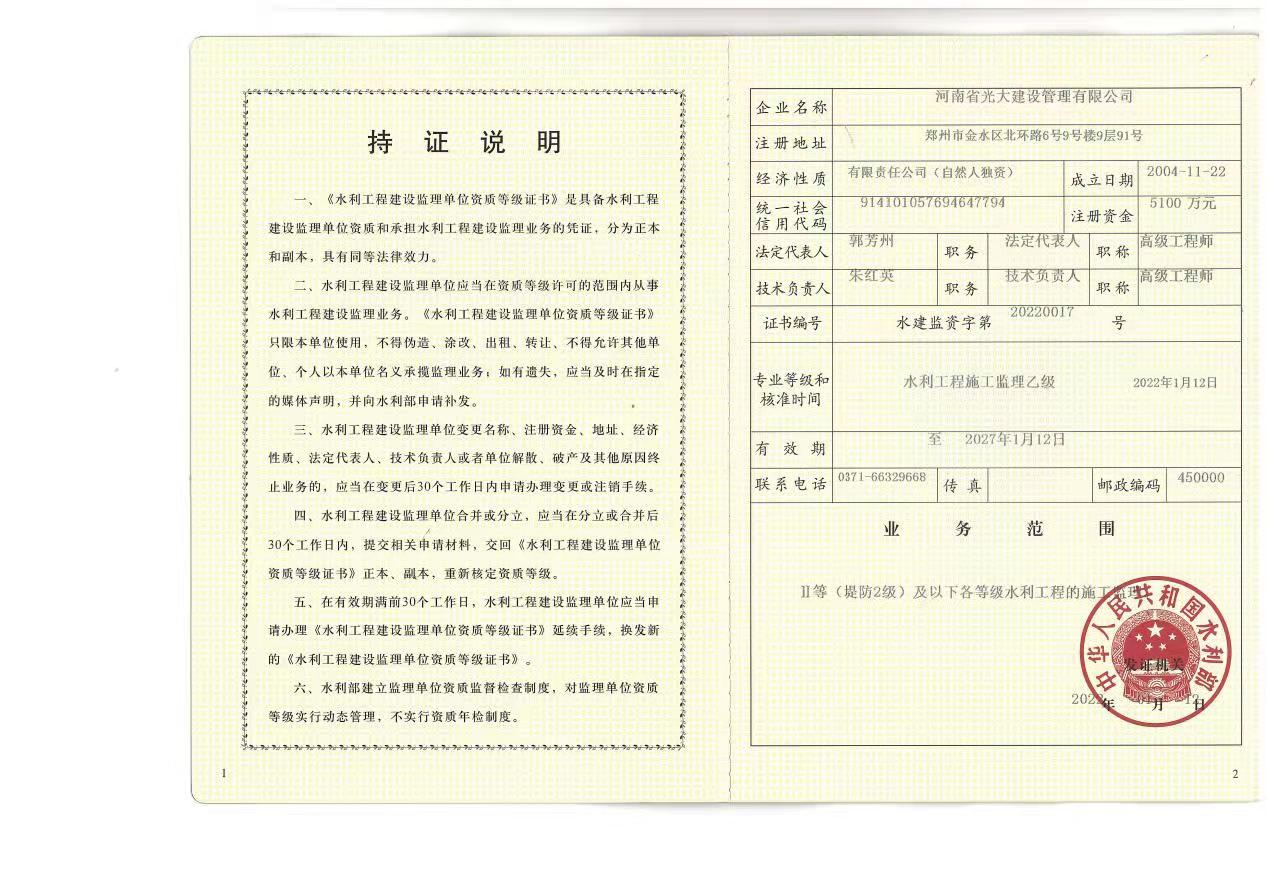 持证说明
一、《水利工程建设监理单位资质等级证书》是具备水利工程
建设监理单位资质和承担水利工程建设监理业务的凭证，分为正本
和副本，具有同等法律效力。
二、水利工程建设监理单位应当在资质等级许可的范围内从事
水利工程建设监理业务。《水利工程建设监理单位资质等级证书》
只限本单位使用，不得伪造、涂改、出租、转让、不得允许其他单
位、个人以本单位名义承揽监理业务；如有遗失，应当及时在指定
的媒体声明，并向水利部申请补发。
三、水利工程建设监理单位变更名称、注册资金、地址、经济
性质、法定代表人、技术负责人或者单位解散、破产及其他原因终
止业务的，应当在变更后30个工作日内申请办理变更或注销手续。
四、水利工程建设监理单位合并或分立，应当在分立或合并后
30个工作日内，提交相关申请材料，交回《水利工程建设监理单位
资质等级证书》正本、副本，重新核定资质等级。
五、在有效期满前30个工作日，水利工程建设监理单位应当申
请办理《水利工程建设监理单位资质等级证书》延续手续，换发新
的《水利工程建设监理单位资质等级证书》。
六、水利部建立监理单位资质监督检查制度，对监理单位资质
等级实行动态管理，不实行资质年检制度。
1
企业名称 河南省光大建设管理有限公司
注册地址 郑州市金水区北环路6号9号楼9层91号
经济性质 有限责任公司（自然人独资） 成立日期 2004-11-22
统一社会
信用代码 914101057694647794 注册资金 5100 万元
法定代表人 郭芳州 职务 法定代表人 职称 高级工程师
技术负责人 朱红英 职务 技术负责人 职称 高级工程师
证书编号 水建监资字第 20220017 号
专业等级和
核准时间 水利工程施工监理乙级 2022年1月12日
有效期 至 2027年1月12日
联系电话 0371-66329668 传真 邮政编码 450000
业务范围
Ⅱ等（堤防2级）及以下各等级水利工程的施工监理
中华人民共和国水利部
发证机关
2022 年 01 月 12 日
2